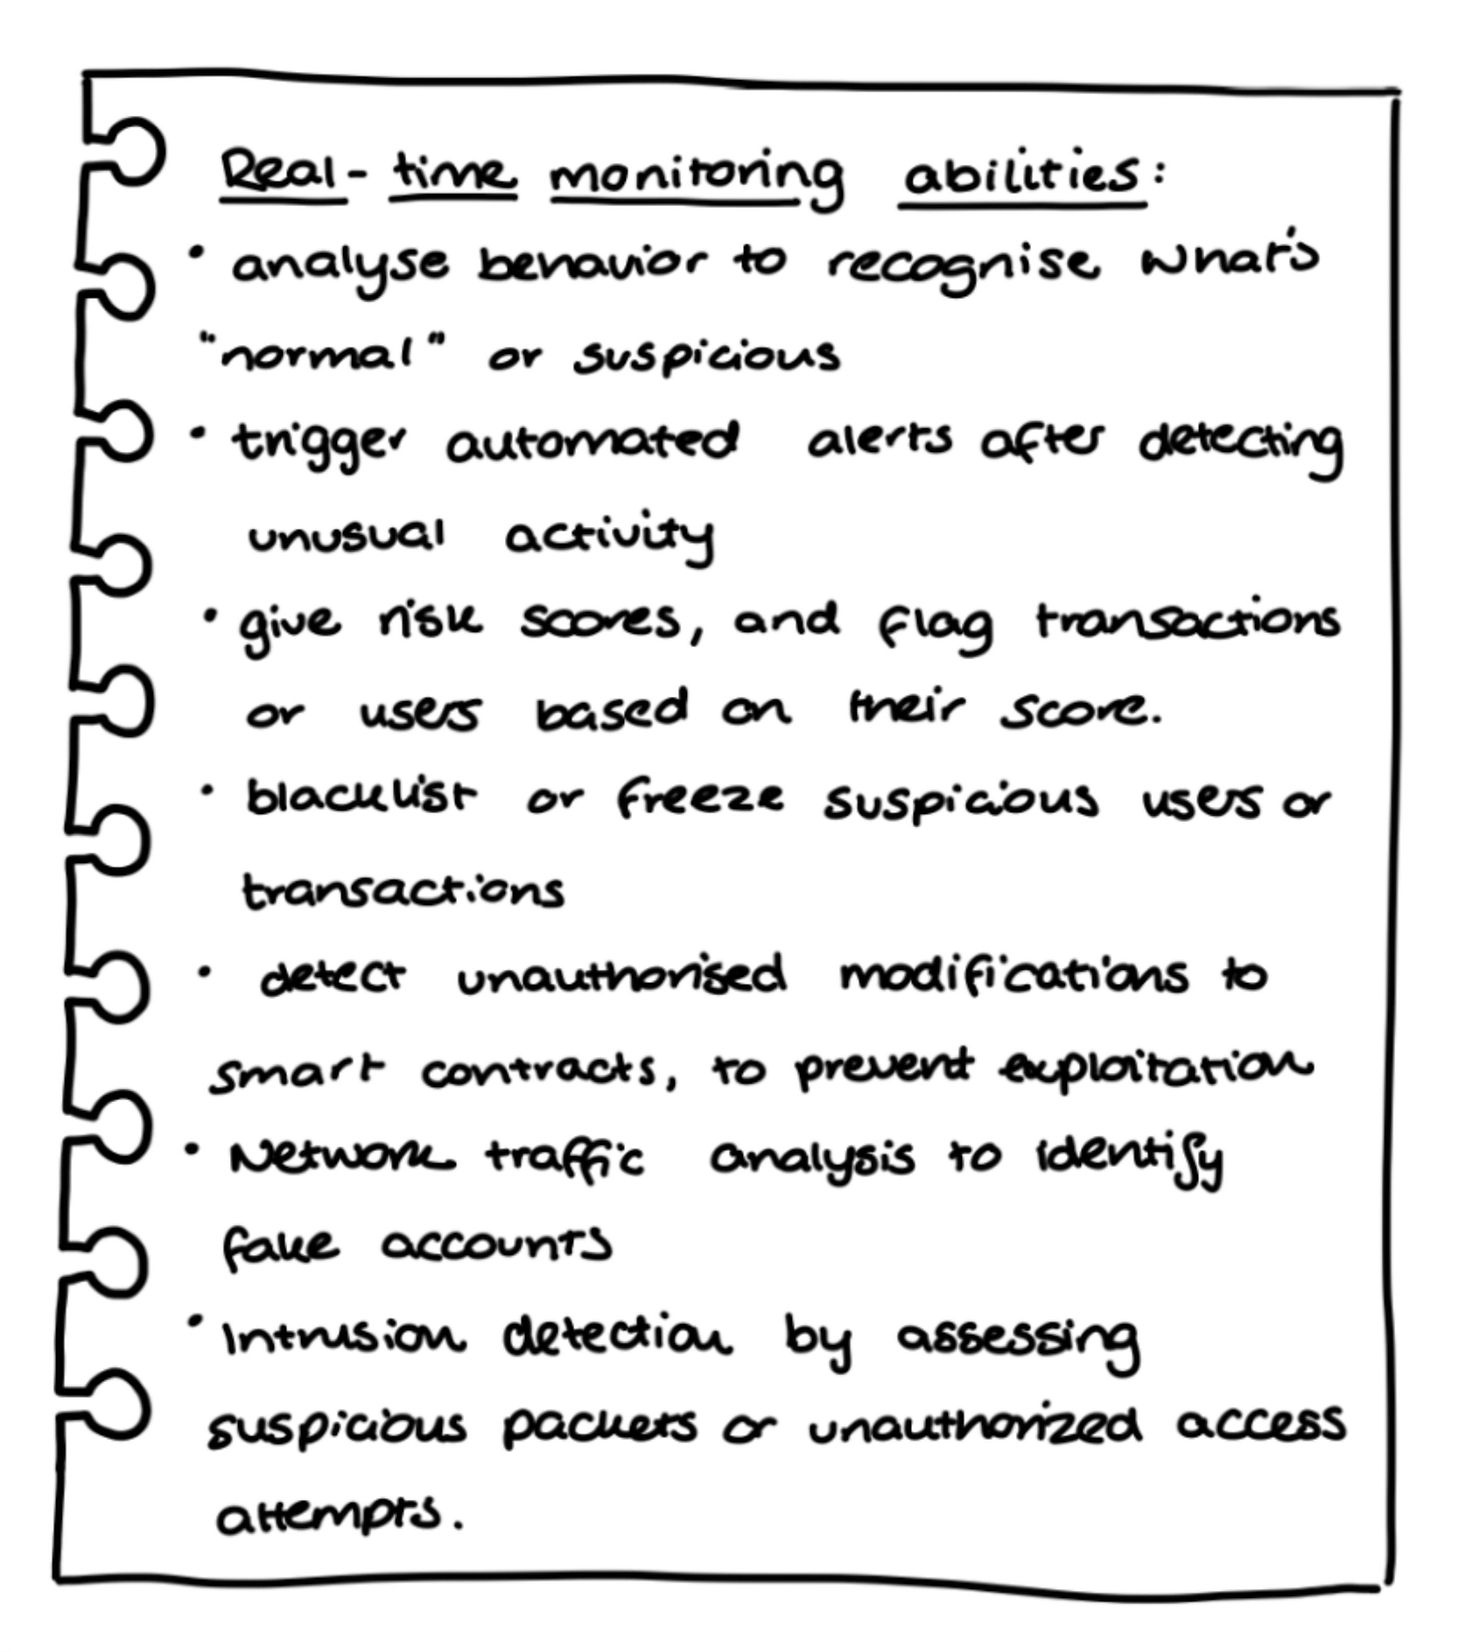 Real-time monitoring abilities:
• analyse behavior to recognise what's
"normal" or suspicious
• trigger automated alerts after detecting
unusual activity
• give risk scores, and flag transactions
or users based on their score.
• blacklist or freeze suspicious users or
transactions
• detect unauthorised modifications to
smart contracts, to prevent exploitation
• Network traffic analysis to identify
fake accounts
• Intrusion detection by assessing
suspicious packets or unauthorized access
attempts.